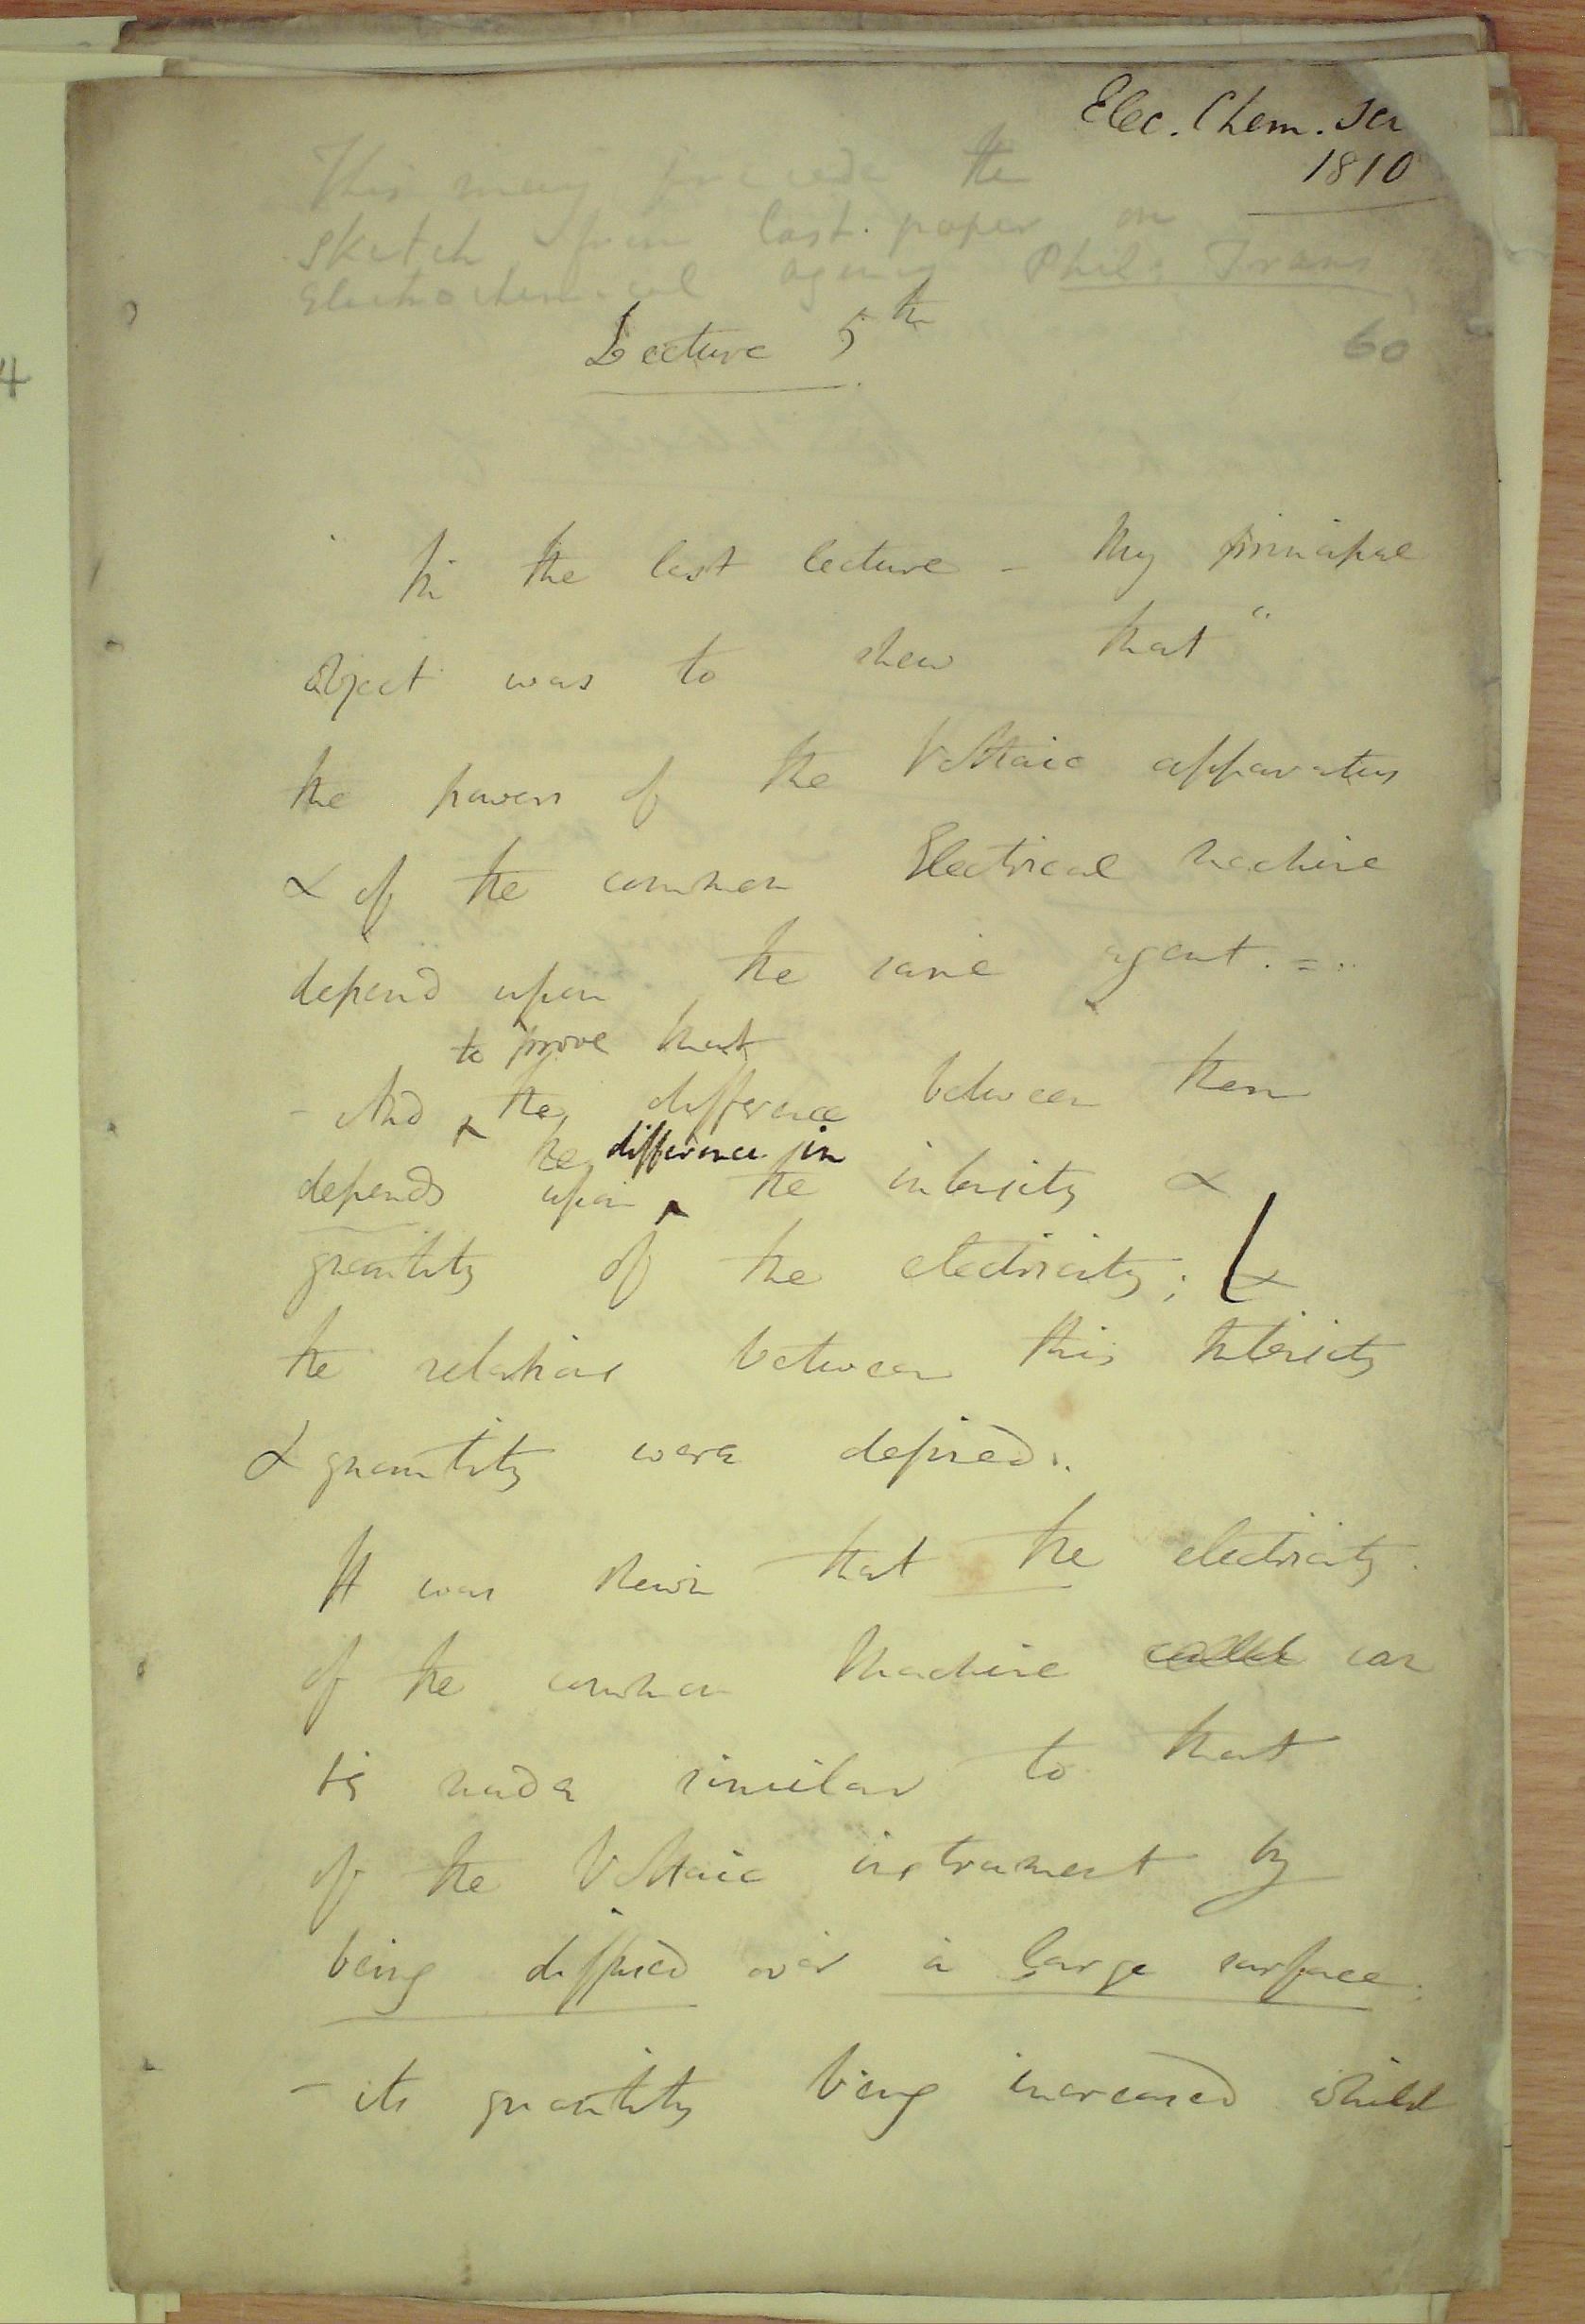 Elec. Chem. Sci
1810
This may precede the
sketch from last paper on
electrochemical agency Phil. Trans
60
4
Lecture 5th
"In the last lecture - My principal
object was to shew that"
the powers of the Voltaic apparatus
& of the common Electrical machine
depend upon the same agent. =
to prove that
- And ^ the difference between them
the difference in
depends upon ^ the intensity &
quantity of the electricity; &
the relations between this Intensity
& quantity were defined.
It was shewn that the electricity
of the common Machine called can
be made similar to that
of the Voltaic instrument by
being diffused over a large surface.
- its quantity being increased whilst